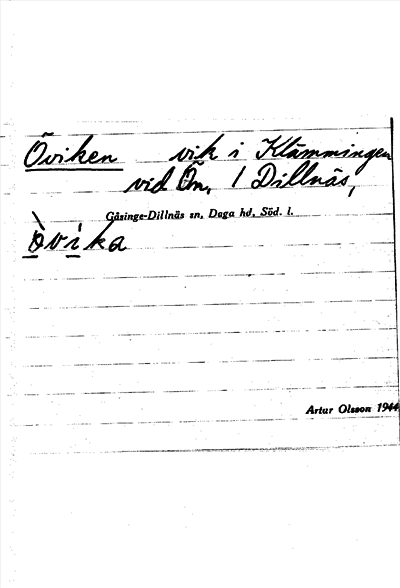 Öviken vik i Klämmingen
vid Ön, 1 Dillnäs,
Gåsinge-Dillnäs sn, Daga hd, Söd. l.
Òvíka
Artur Olsson 1944